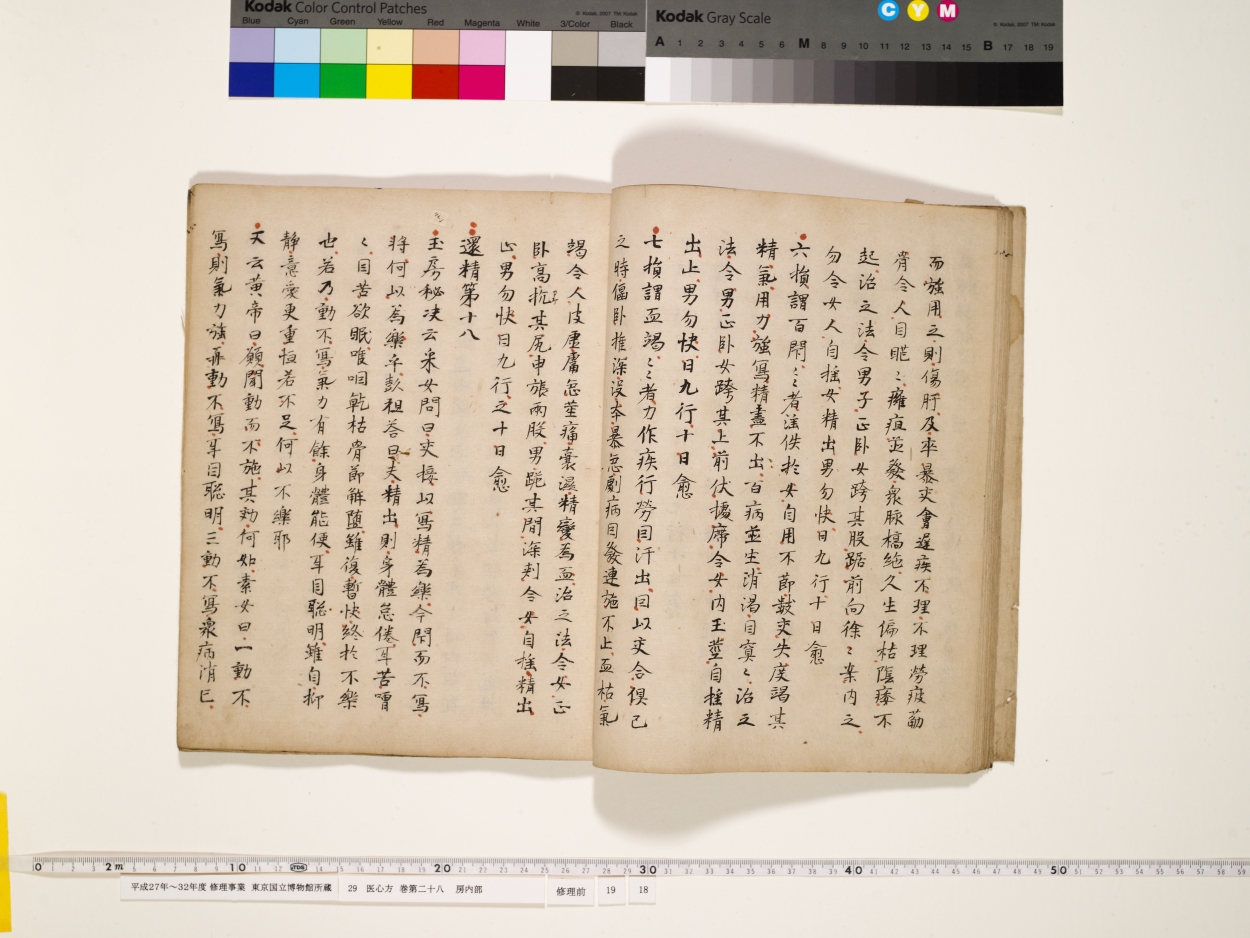 Kodak Color Control Patches
Blue Cyan Green Yellow Red Magenta White 3/Color Black
© Kodak, 2007 TM: Kodak
Kodak Gray Scale
C Y M
© Kodak, 2007 TM: Kodak
A 1 2 3 4 5 6 M 8 9 10 11 12 13 14 15 B 17 18 19
而強用之則傷肝及卒暴交會遲疾不理不理勞疲萠
骨令人目眶〻癰疽並發衆脉槁絶久生偏枯陰痿不
起治之法令男子正卧女跨其股踞前向徐〻案内之
勿令女人自揺女精出男勿快日九行十日愈
六損謂百閇〻者滛佚於女自用不節數交失度竭其
精氣用力強寫精盡不出百病並生消渇目冥〻治之
法令男正卧女跨其上前伏據席令女内玉莖自揺精
出止男勿快日九行十日愈
七損謂血竭〻者力作疾行勞因汗出因以交合俱已
之時偃卧推深没本暴急劇病因發連施不止血枯氣
竭令人皮虚膚急莖痛嚢濕精變為血治之法令女正
卧高抗其尻申張兩股男跪其間深刺令女自揺精出
止男勿快日九行之十日愈
還精第十八
玉房秘决云采女問曰交接以寫精為樂今閇而不寫
将何以為樂乎彭祖荅曰夫精出則身體怠倦耳苦嘈
〻目苦欲眠喉咽乾枯骨節解堕雖復暫快終於不樂
也若乃動不寫氣力有餘身體能便耳目聡明雖自抑
静意愛更重恒若不足何以不樂耶
又云黄帝曰願聞動而不施其効何如素女曰一動不
寫則氣力強再動不寫耳目聡明三動不寫衆病消亡
0 10 20 30 40 50
2m
平成27年～32年度 修理事業 東京国立博物館所蔵
29 医心方 巻第二十八 房内部
修理前
19
18